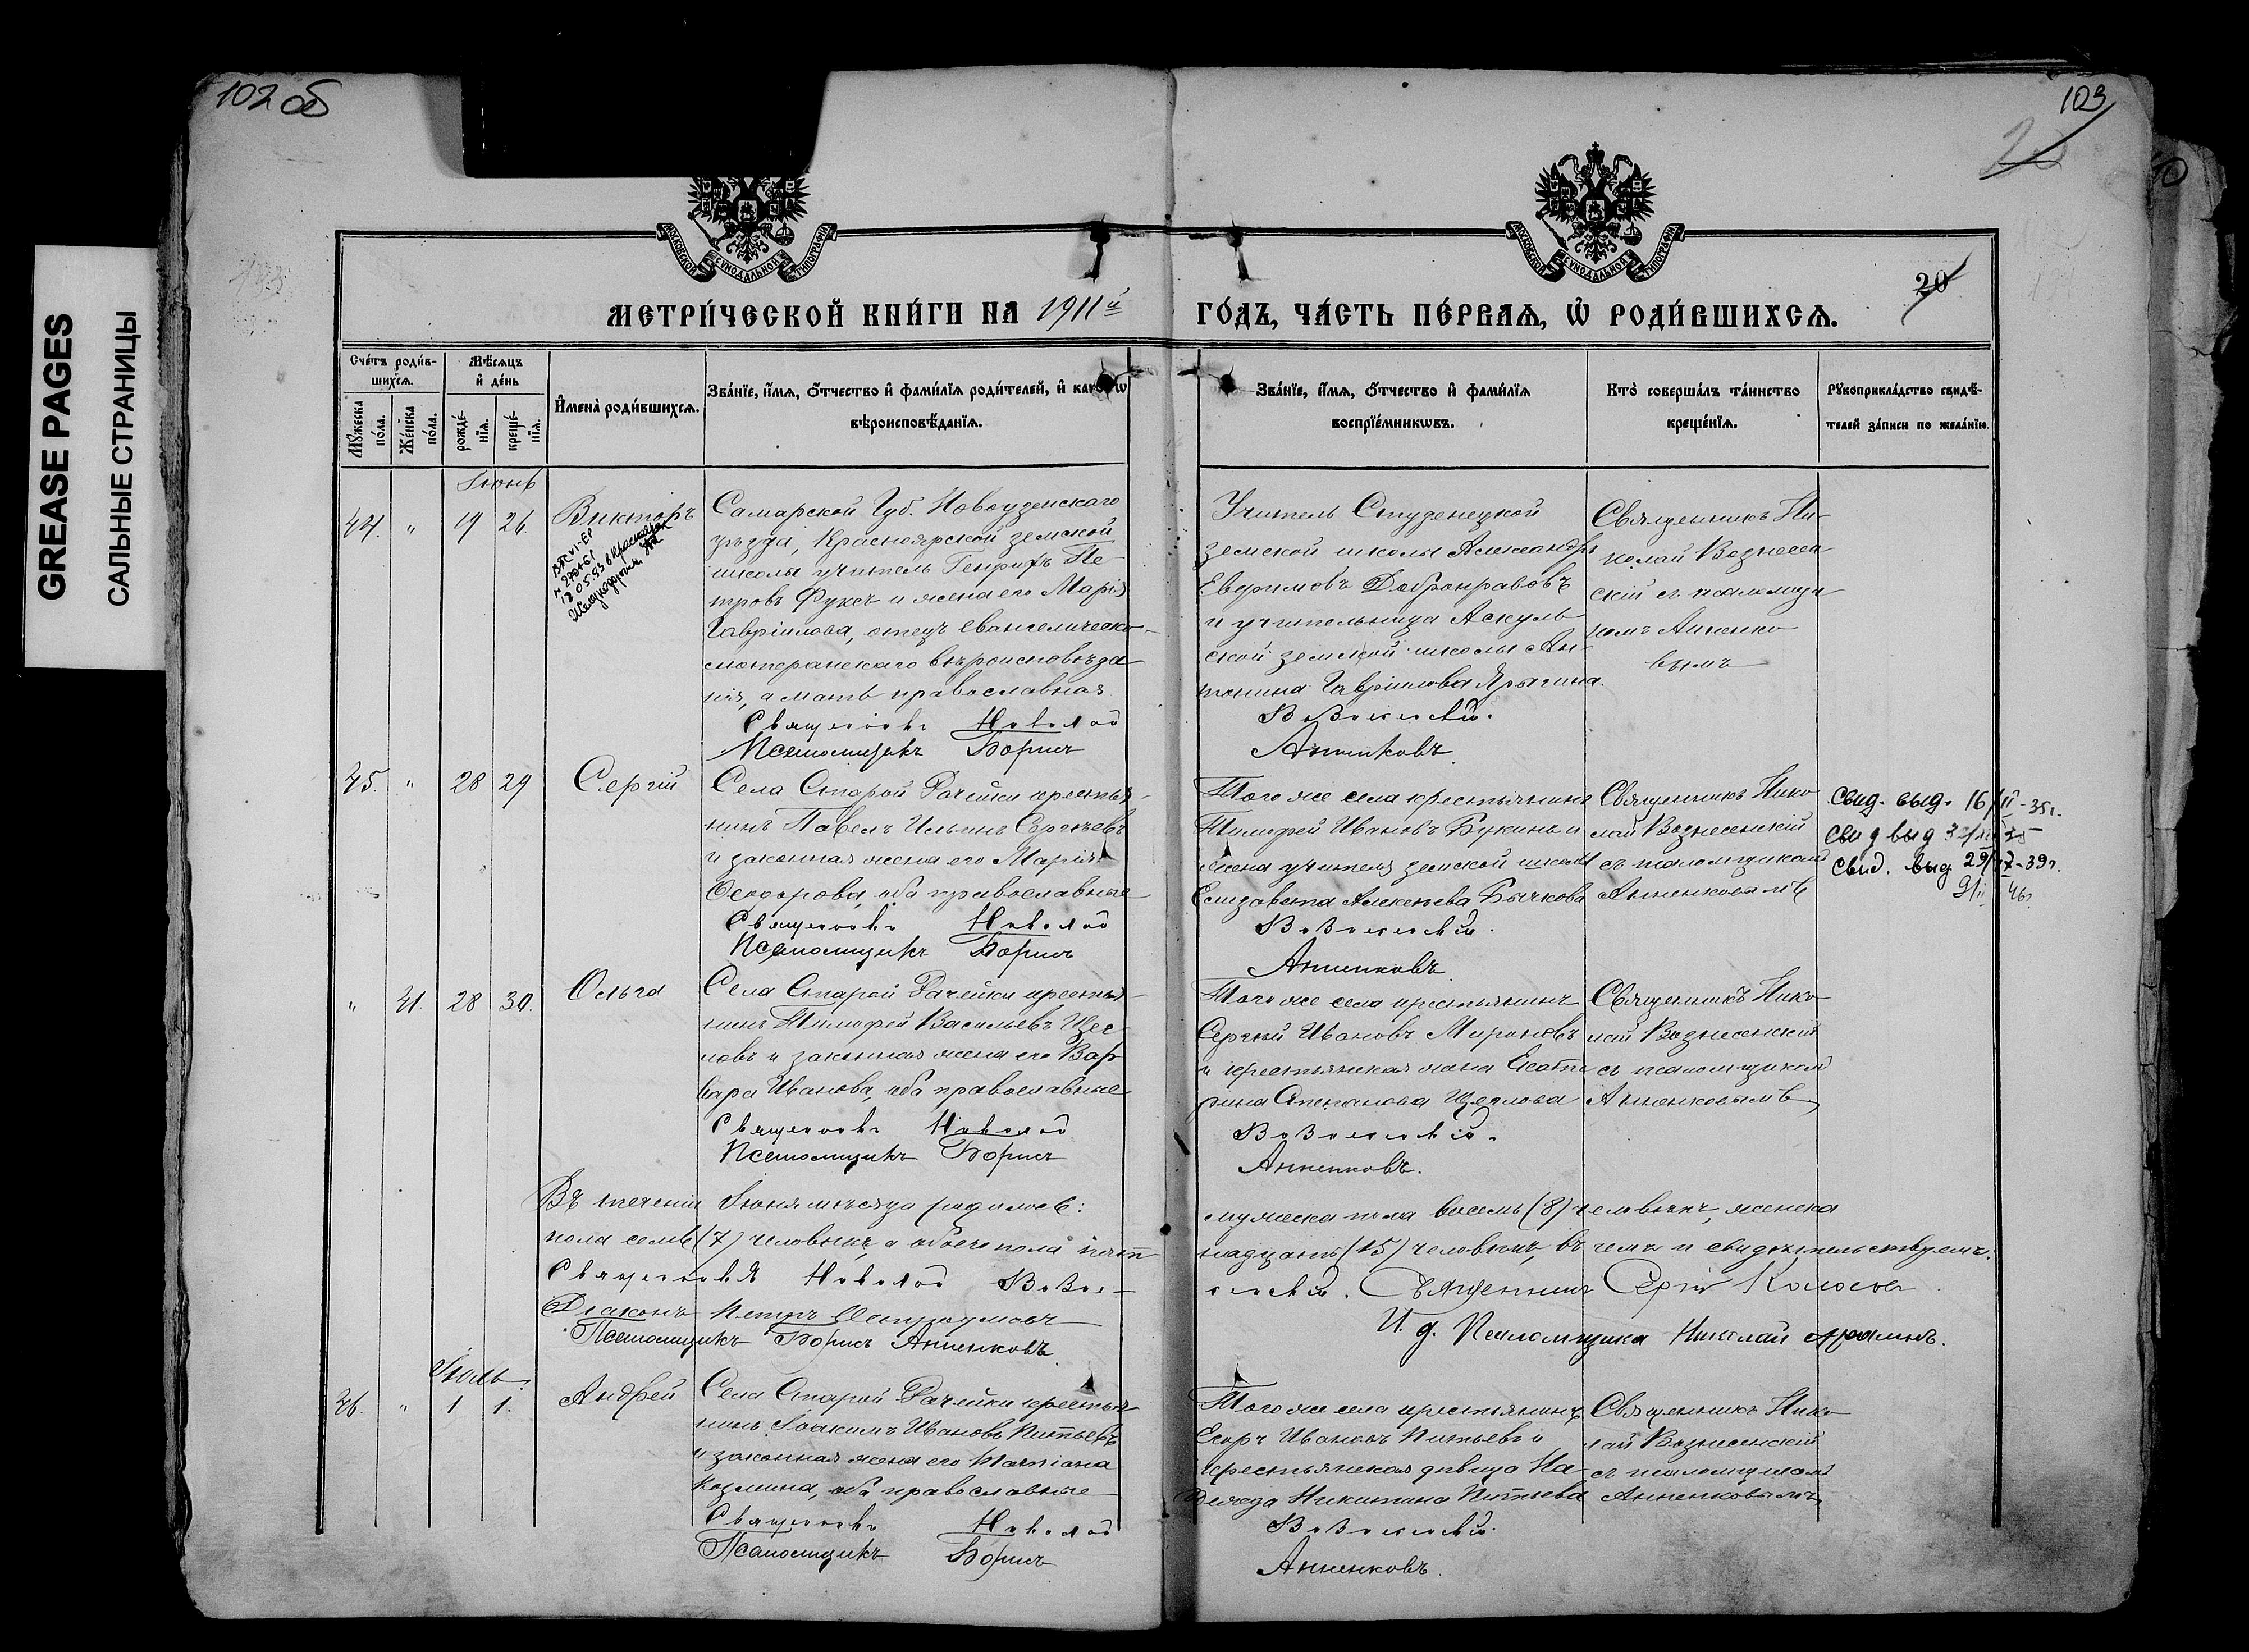 GREASE PAGES
САЛЬНЫЕ СТРАНИЦЫ
102 об
103
20
МОСКОВСКОЙ СУНОДАЛЬНОЙ ТИПОГРАФІИ
МОСКОВСКОЙ СУНОДАЛЬНОЙ ТИПОГРАФІИ
МЕТРИ́ЧЕСКОЙ КНИ́ГИ НА 1911й
ГО́ДЪ, ЧА́СТЬ ПЕ́РВАѦ, Ѡ҆ РОДИ́ВШИХСѦ.
20
Сче́тъ роди́в-
шихсѧ.
Мѣсѧцъ
и҆ де́нь
Мꙋжеска по́ла.
Же́нска по́ла.
рожде́-
нїѧ.
креще́-
нїѧ.
И҆мена̀ роди́вшихсѧ.
Зва́нїе, и҆́мѧ, ѻ҆́тчество и҆ фами́лїѧ роди́телей, и҆ какогѡ
вѣроисповѣ́данїѧ.
Зва́нїе, и҆́мѧ, ѻ҆́тчество и҆ фами́лїѧ
воспрїе́мникѡвъ.
Кто̀ соверша́лъ та́инство
креще́нїѧ.
Рꙋкоприкла́дство свидѣ́-
телей за́писи по жела́нїю.
Іюнь
44. " 19 26. Викторъ
Самарской Губ. Новоузенскаго
уѣзда, Красноярской земской
школы учитель Генрихъ Пе-
тровъ Фуксъ и жена его Марія
Гавріилова, отецъ евангелическо-
лютеранскаго вѣроисповѣда-
нія, а мать православная.
Священникъ Николай
Псаломщикъ Борисъ
Учитель Студенецкой
земской школы Александръ
Евфимовъ Добронравовъ
и учительница Аскуль-
ской земской школы Ан-
тонина Гавріилова Ярыгина.
Вознесенскій.
Анненковъ.
Священникъ Ни-
колай Вознесен-
скій съ псаломщи-
комъ Анненко-
вымъ
45. " 28 29 Сергій
Села Старой Рачейки крестья-
нинъ Павелъ Ильинъ Сергѣевъ
и законная жена его Марія
Ѳеодорова, оба православные
Священникъ Николай
Псаломщикъ Борисъ
Того же села крестьянинъ
Тимофей Ивановъ Букинъ и
жена учителя земской школы
Елизавета Алексѣева Бычкова
Вознесенскій.
Анненковъ.
Священникъ Нико-
лай Вознесенскій
съ псаломщикомъ
Анненковымъ
Свид. выд. 16/II-35г.
свид выд
Свид. выд 29/ -39г.
46г.
" 41. 28 30. Ольга
Села Старой Рачейки крестья-
нинъ Тимофей Васильевъ Щег-
ловъ и законная жена его Вар-
вара Иванова, оба православные
Священникъ Николай
Псаломщикъ Борисъ
Того же села крестьянинъ
Сергѣй Ивановъ Мироновъ
и крестьянская жена Екате-
рина Степанова Щеглова
Вознесенскій.
Анненковъ.
Священникъ Нико-
лай Вознесенскій
съ псаломщикомъ
Анненковымъ
Въ теченіи Іюня мѣсяца родилось:
мужеска пола восемь (8) человѣкъ, женска
пола семь (7) человѣкъ, а обоего пола пят-
надцать (15) человѣкъ, въ чемъ и свидѣтельствуемъ:
Священникъ Николай Вознесенскій. Священникъ Сергій
Діаконъ Петръ Остроумовъ
Псаломщикъ Борисъ Анненковъ
И. д. Псаломщика Николай
Іюль.
46. " 1 1. Андрей
Села Старой Рачейки крестья-
нинъ Іоакимъ Ивановъ Питьевъ
и законная жена его Татіана
Козмина, оба православные
Священникъ Николай
Псаломщикъ Борисъ
Того же села крестьянинъ
Егоръ Ивановъ Питьевъ и
крестьянская дѣвица На-
дежда Никитина Питьева
Вознесенскій.
Анненковъ.
Священникъ Нико-
лай Вознесенскій
съ псаломщикомъ
Анненковымъ